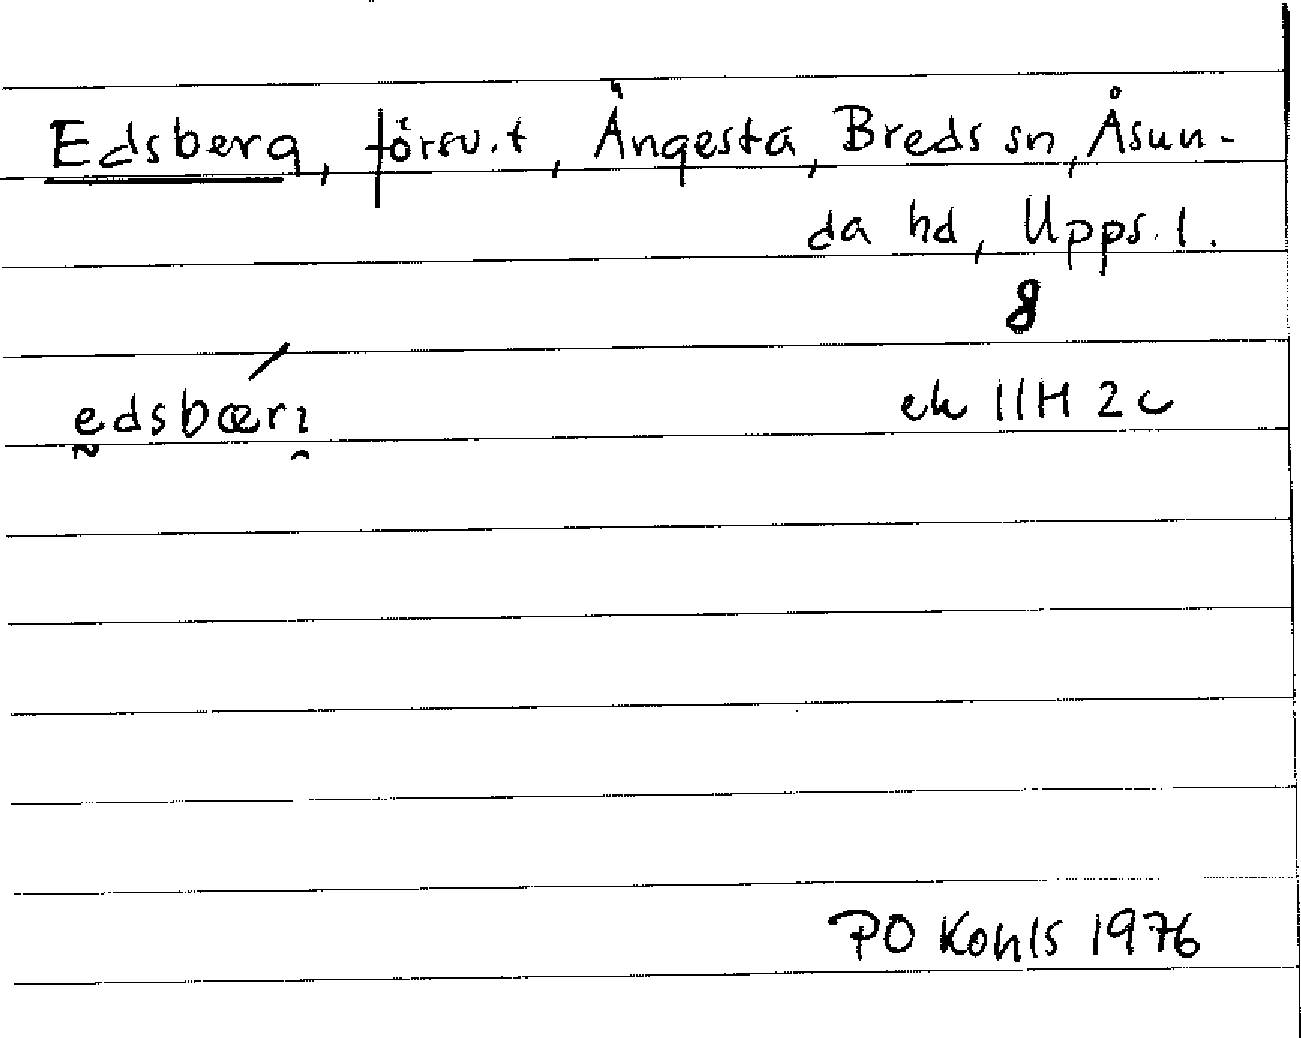 Edsberg, försv. t, Ängesta, Breds sn, Åsun-
da hd, Upps. l.
8
edsbærı
ek 11H 2c
PO Kohls 1976